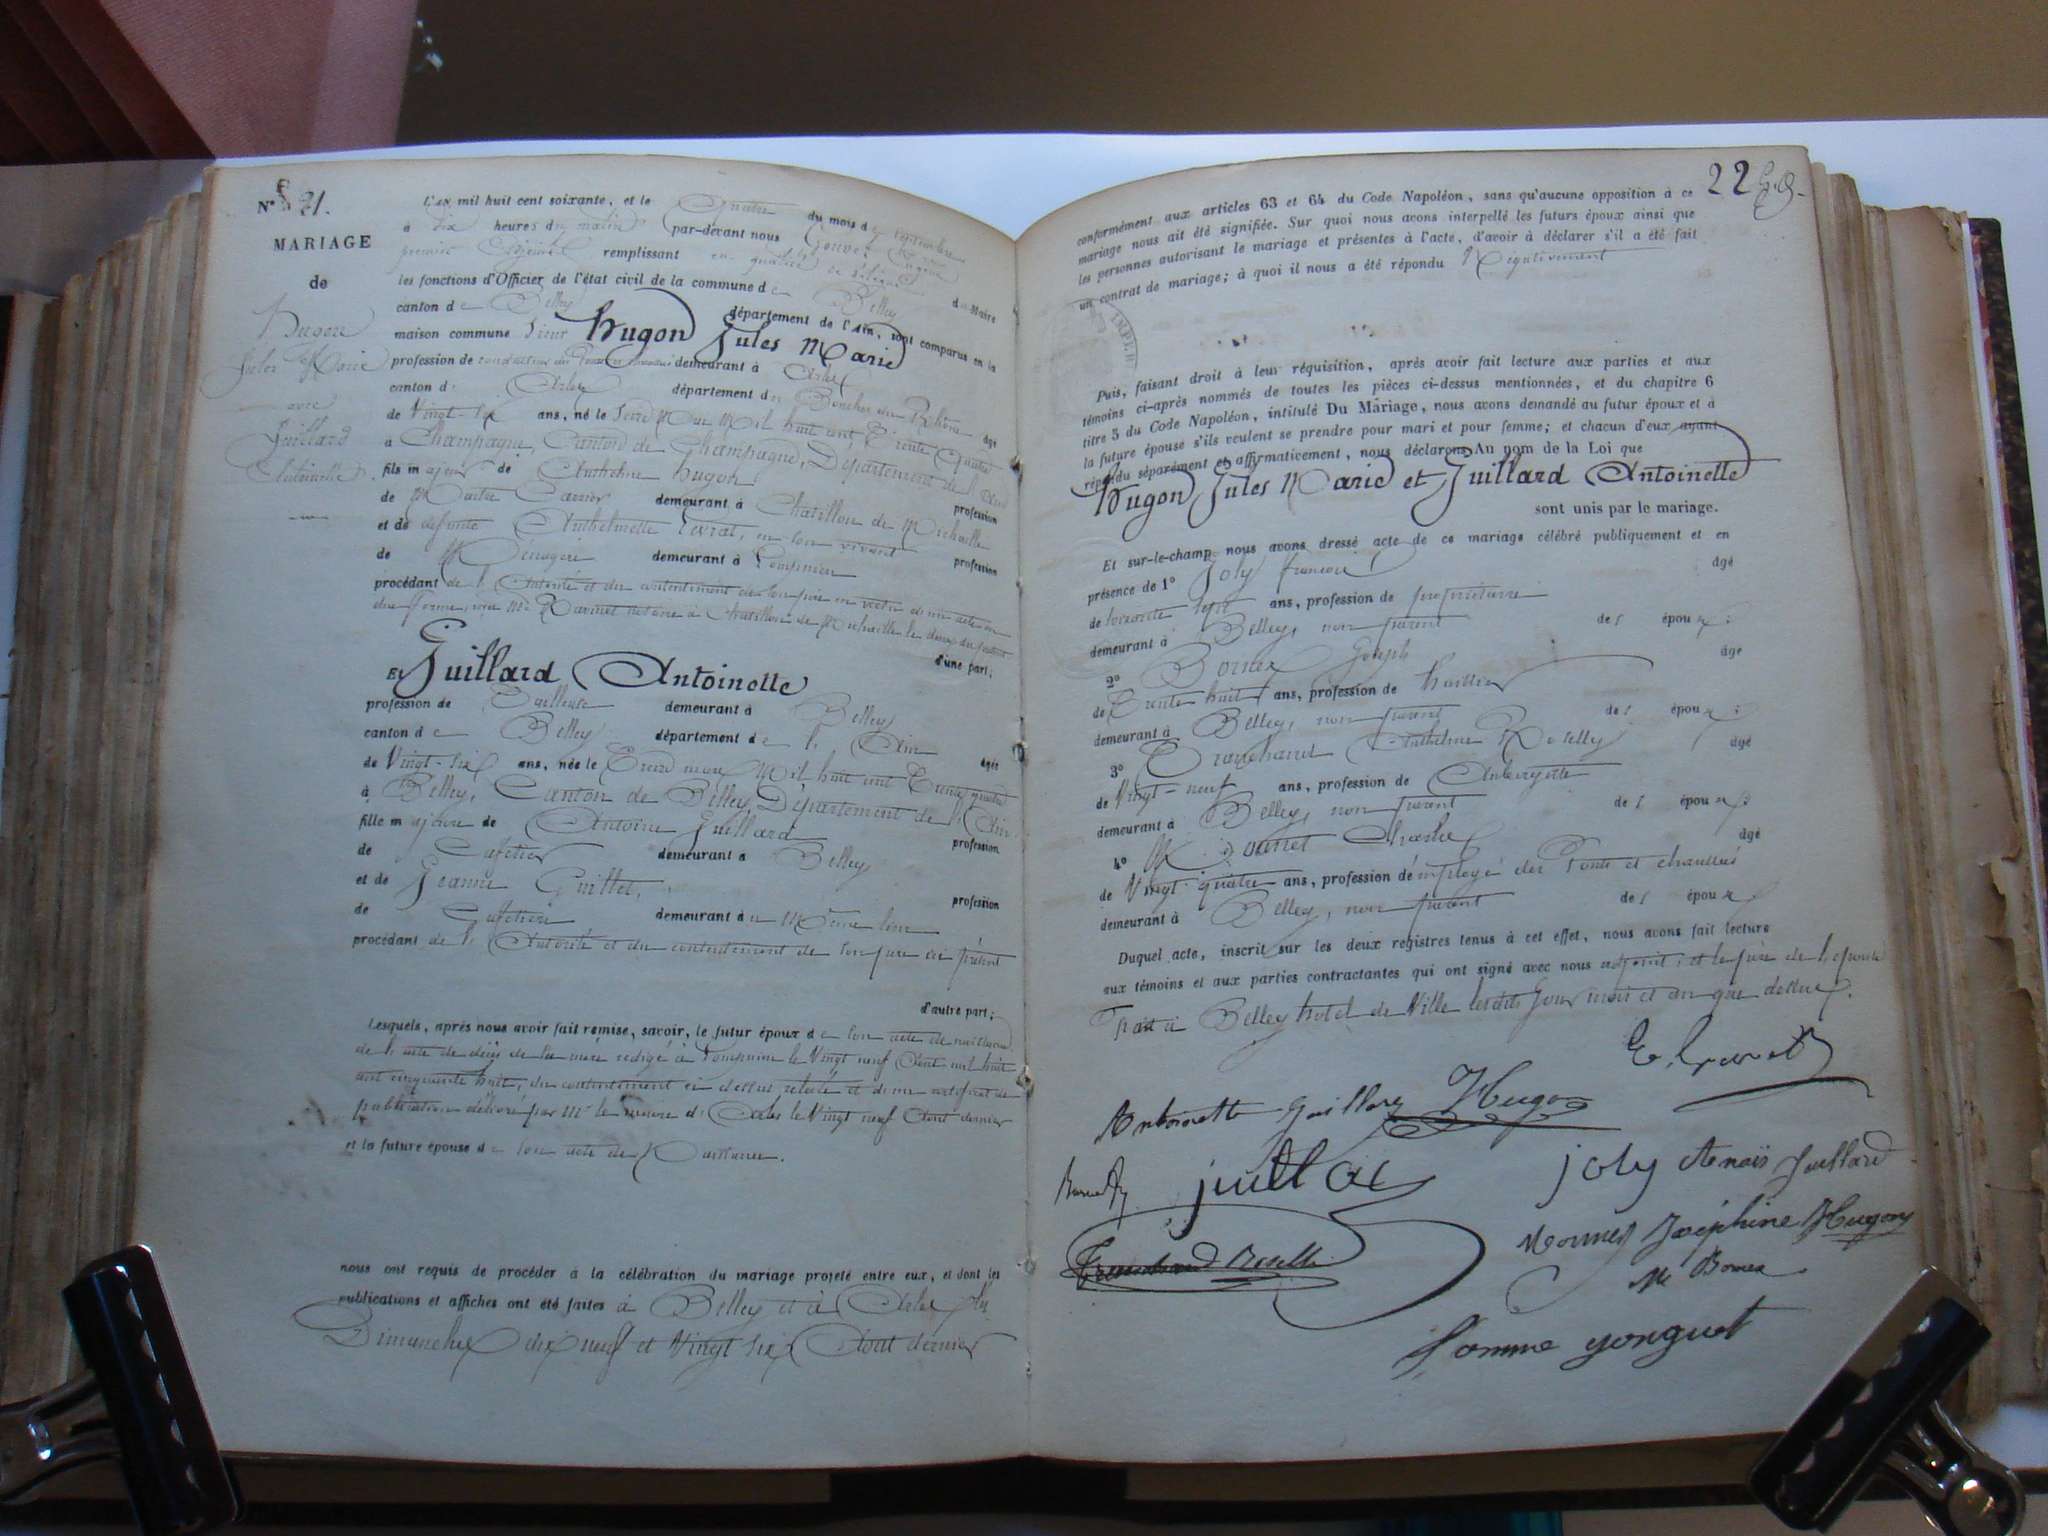 N° 21.
MARIAGE
de
Hugon
Jules Marie
avec
Juillard
Antoinette.
L'an mil huit cent soixante, et le Quatre du mois de septembre
à Dix heures du matin par-devant nous
premier Adjoint remplissant en qualité de du Maire
les fonctions d'Officier de l'état civil de la commune de Belley
canton de Belley département de l'Ain, sont comparus en la
maison commune Sieur Hugon Jules Marie
profession de conducteur des Ponts et chaussées demeurant à Arles
canton d' Arles département des Bouches du Rhône âgé
de Vingt-six ans, né le Mai Mil huit cent Trente Quatre
à Champagne, Canton de Champagne, Département de l'Ain
fils majeur de Anthelme hugon profession
de Maitre Carrier demeurant à Chatillon de Michaille
et de défunte Anthelmette, en son vivant profession
de Ménagère demeurant à
procédant de l'Autorité et du contentement de son père en vertu d'un acte en
due forme, reçu Me Ravinet notaire à Chatillon de Michaille le deux du présent
d'une part;
Et Juillard Antoinette
profession de Tailleuse demeurant à Belley
canton de Belley département de l'Ain âgée
de Vingt-six ans, née le Treize mars Mil huit cent Trente quatre
à Belley, Canton de Belley, Département de l'Ain
fille majeure de Antoine Juillard profession
de Cafetier demeurant à Belley
et de Jeanne Guillet, profession
de Cafetière demeurant au Même lieu
procédant de l'Autorité et du contentement de son père ici présent
d'autre part;
Lesquels, après nous avoir fait remise, savoir, le futur époux de son acte de naissance
de l'acte de décès de sa mère rédigé à le Vingt neuf Août mil huit
cent cinquante huit, du contentement ci dessus relaté et d'un certificat de
publication délivré par Mr le maire d'Arles le Vingt neuf Août dernier
et la future épouse de son acte de Naissance.
nous ont requis de procéder à la célébration du mariage projeté entre eux, et dont les
publications et affiches ont été faites à Belley et à Arles les
Dimanches dix neuf et Vingt six Août dernier
22
conformément aux articles 63 et 64 du Code Napoléon, sans qu'aucune opposition à ce
mariage nous ait été signifiée. Sur quoi nous avons interpellé les futurs époux ainsi que
les personnes autorisant le mariage et présentes à l'acte, d'avoir à déclarer s'il a été fait
un contrat de mariage; à quoi il nous a été répondu Négativement
Puis, faisant droit à leur réquisition, après avoir fait lecture aux parties et aux
témoins ci-après nommés de toutes les pièces ci-dessus mentionnées, et du chapitre 6
titre 5 du Code Napoléon, intitulé Du Mariage, nous avons demandé au futur époux et à
la future épouse s'ils veulent se prendre pour mari et pour femme; et chacun d'eux ayant
répondu séparément et affirmativement, nous déclarons Au nom de la Loi que
hugon Jules Marie et Juillard Antoinette
sont unis par le mariage.
Et sur-le-champ nous avons dressé acte de ce mariage célébré publiquement et en
présence de 1° Joly françois âgé
de soixante sept ans, profession de propriétaire
demeurant à Belley, non parent des époux;
2° Bornex Joseph âgé
de Trente huit ans, profession de huissier
demeurant à Belley, non parent des époux;
3° Tranchand Anthelme Roselly âgé
de Vingt-neuf ans, profession de Aubergiste
demeurant à Belley, non parent des époux;
4° Monnet Charles âgé
de Vingt-quatre ans, profession d'employé des Ponts et chaussées
demeurant à Belley, non parent des époux
Duquel acte, inscrit sur les deux registres tenus à cet effet, nous avons fait lecture
aux témoins et aux parties contractantes qui ont signé avec nous adjoint et le père de l'épouse
fait à Belley hotel de Ville lesdits Jour mois et an que dessus.
Antoinette Juillard Hugon
juillard Joly Anaïs Juillard
Monnet Joséphine Hugon
Tranchand Roselli M Bornex